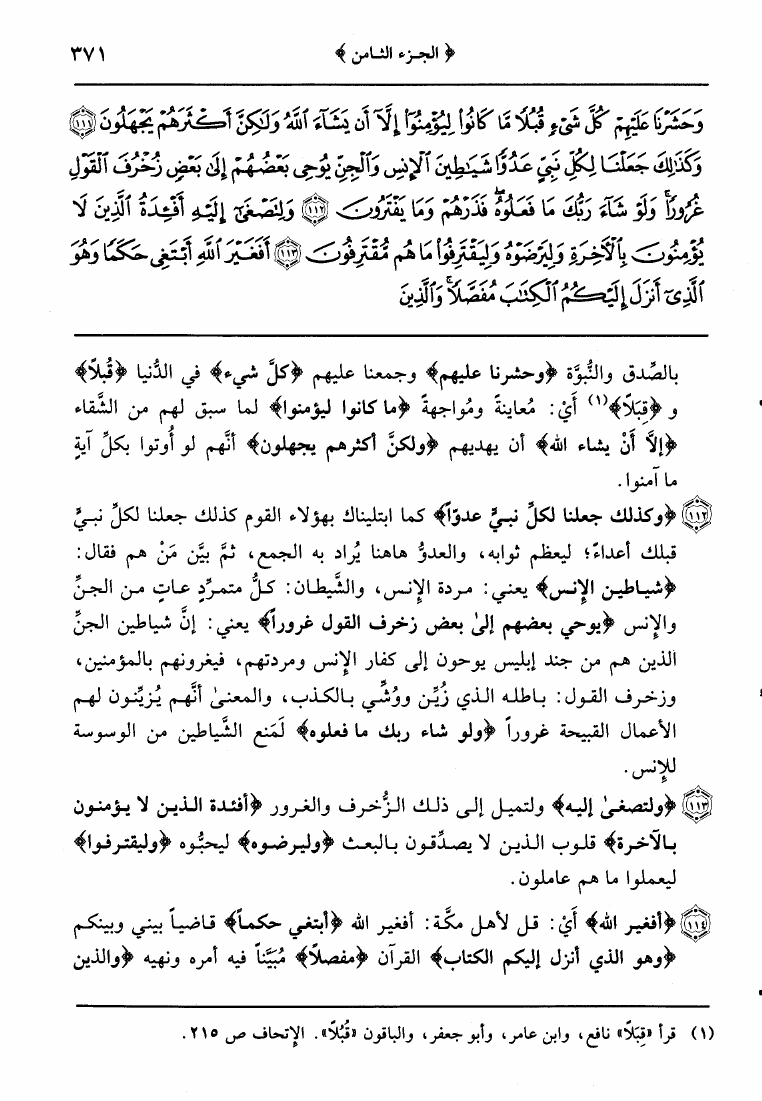 ﴿ الجزء الثامن ﴾ ٣٧١
وَحَشَرْنَا عَلَيْهِمْ كُلَّ شَىْءٍ قُبُلًا مَّا كَانُوا۟ لِيُؤْمِنُوٓا۟ إِلَّآ أَن يَشَآءَ ٱللَّهُ وَلَـٰكِنَّ أَكْثَرَهُمْ يَجْهَلُونَ ١١١
وَكَذَٰلِكَ جَعَلْنَا لِكُلِّ نَبِىٍّ عَدُوًّا شَيَـٰطِينَ ٱلْإِنسِ وَٱلْجِنِّ يُوحِى بَعْضُهُمْ إِلَىٰ بَعْضٍ زُخْرُفَ ٱلْقَوْلِ
غُرُورًا ۚ وَلَوْ شَآءَ رَبُّكَ مَا فَعَلُوهُ ۖ فَذَرْهُمْ وَمَا يَفْتَرُونَ ١١٢ وَلِتَصْغَىٰٓ إِلَيْهِ أَفْـِٔدَةُ ٱلَّذِينَ لَا
يُؤْمِنُونَ بِٱلْـَٔاخِرَةِ وَلِيَرْضَوْهُ وَلِيَقْتَرِفُوا۟ مَا هُم مُّقْتَرِفُونَ ١١٣ أَفَغَيْرَ ٱللَّهِ أَبْتَغِى حَكَمًا وَهُوَ
ٱلَّذِىٓ أَنزَلَ إِلَيْكُمُ ٱلْكِتَـٰبَ مُفَصَّلًا ۚ وَٱلَّذِينَ
بالصِّدق والنُّبوَّة ﴿وحشرنا عليهم﴾ وجمعنا عليهم ﴿كلَّ شيء﴾ في الدُّنيا ﴿قُبلاً﴾
و ﴿قِبَلاً﴾(١) أَيْ: مُعاينةً ومُواجهةً ﴿ما كانوا ليؤمنوا﴾ لما سبق لهم من الشَّقاء
﴿إلاَّ أَنْ يشاء الله﴾ أن يهديهم ﴿ولكنَّ أكثرهم يجهلون﴾ أنَّهم لو أُوتوا بكلِّ آيةٍ
ما آمنوا.
١١٢ ﴿وكذلك جعلنا لكلِّ نبيٍّ عدوّاً﴾ كما ابتليناك بهؤلاء القوم كذلك جعلنا لكلِّ نبيٍّ
قبلك أعداءً؛ ليعظم ثوابه، والعدوُّ هاهنا يُراد به الجمع، ثمَّ بيَّن مَنْ هم فقال:
﴿شياطين الإنس﴾ يعني: مردة الإنس، والشَّيطان: كلُّ متمرِّدٍ عاتٍ من الجنِّ
والإنس ﴿يوحي بعضهم إلىٰ بعض زخرف القول غروراً﴾ يعني: إنَّ شياطين الجنِّ
الذين هم من جند إبليس يوحون إلى كفار الإنس ومردتهم، فيغرونهم بالمؤمنين،
وزخرف القول: باطله الذي زُيِّن ووُشِّي بالكذب، والمعنىٰ أنَّهم يُزيِّنون لهم
الأعمال القبيحة غروراً ﴿ولو شاء ربك ما فعلوه﴾ لَمَنع الشَّياطين من الوسوسة
للإنس.
١١٣ ﴿ولتصغىٰ إليه﴾ ولتميل إلى ذلك الزُّخرف والغرور ﴿أفئدة الذين لا يؤمنون
بالآخرة﴾ قلوب الذين لا يصدِّقون بالبعث ﴿وليرضوه﴾ ليحبُّوه ﴿وليقترفوا﴾
ليعملوا ما هم عاملون.
١١٤ ﴿أفغير الله﴾ أَيْ: قل لأهل مكَّة: أفغير الله ﴿أبتغي حكماً﴾ قاضياً بيني وبينكم
﴿وهو الذي أنزل إليكم الكتاب﴾ القرآن ﴿مفصلاً﴾ مُبَيَّناً فيه أمره ونهيه ﴿والذين
(١) قرأ «قِبَلاً» نافع، وابن عامر، وأبو جعفر، والباقون «قُبُلاً». الإتحاف ص ٢١٥.